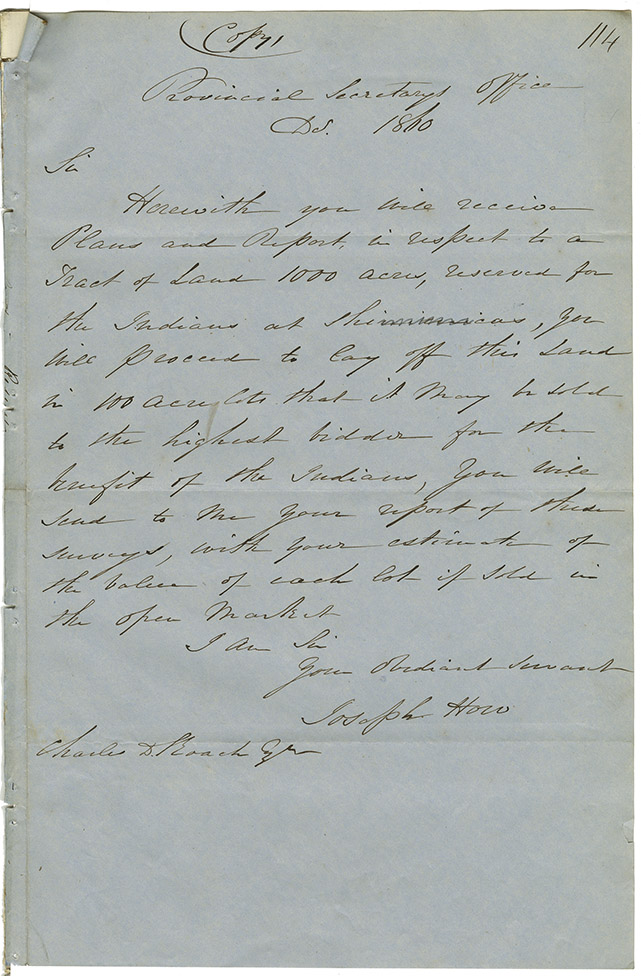 Copy,
114
Provincial Secretarys Office
Dd. 1860
Sir
Herewith you will receive
Plans and Report, in respect to a
Tract of Land 1000 acres, reserved for
the Indians at, you
will proceed to lay off this Land
in 100 acre lots that it May be sold
to the highest bidder for the
benefit of the Indians, You will
send to Me your report of these
surveys, with your estimate of
the value of each lot if sold in
the open Market
I Am Sir
Your Obediant Servant
Joseph How
Charles D Roach Eqr